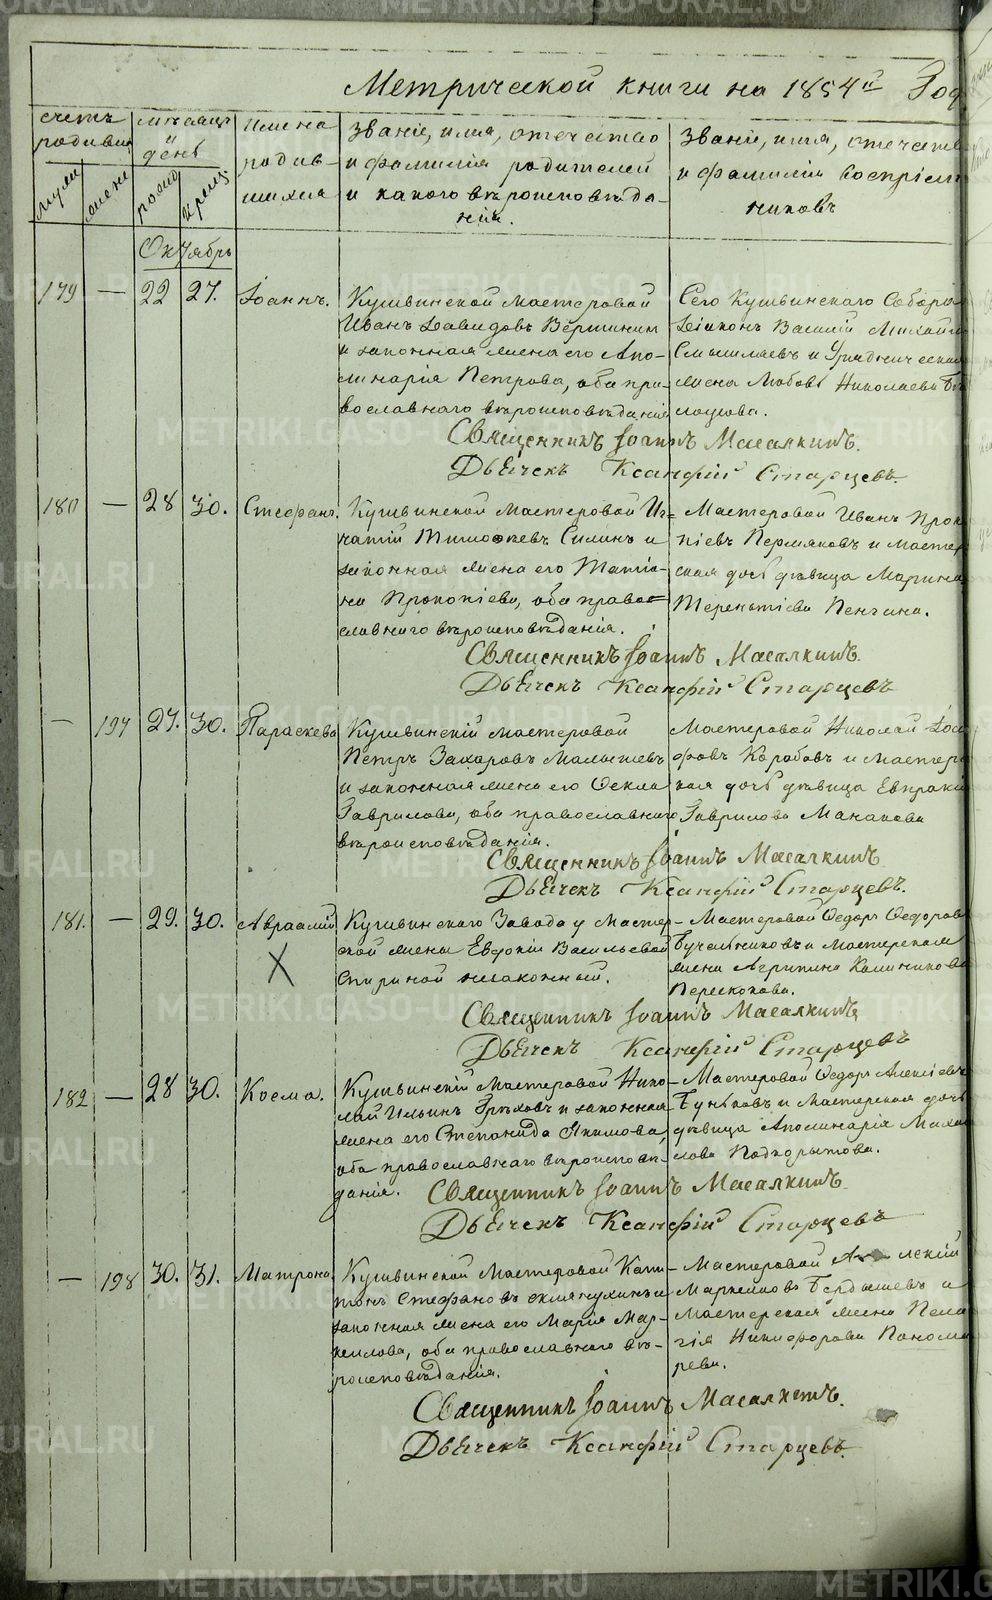 Метрической книги на 1854й Год
счетъ родивш.
мужи
жени
мѣсяцъ и день
рожд
крещ
Имена родив-
шихся
Званіе, имя, отечество
и фамилія родителей
и какого вѣроисповѣда-
нія.
Званіе, имя, отечеств
и фамилія воспріем
никовъ
Октябрь
179 — 22 27. Іоаннъ.
Кушвинской мастеровой
Иванъ Давидовъ Вершинин
и законная жена его Апо-
линарія Петрова, оба пра-
вославнаго вѣроисповѣданія
Сего Кушвинскаго Собора
Діаконъ Василій Михайло
Смышляевъ и Урядническая
жена Любовь Николаева
Священникъ Іоаннъ Масалкинъ.
Дьячекъ Ксанфій Старцевъ
180 — 28 30. Стефанъ.
Кушвинской мастеровой Иг-
натій Тимофеевъ Силинъ и
законная жена его Татіа-
на Прокопіева, оба право=
славнаго вѣроисповѣданія.
Мастеровой Иванъ Прок
піевъ Пермяковъ и мастер
ская дочь дѣвица Марина
Терентіева Пенчина.
Священникъ Іоаннъ Масалкинъ.
Дьячекъ Ксанфій Старцевъ
— 197 27. 30. Параскева
Кушвинскій мастеровой
Петръ Захаровъ Малышевъ
и законная жена его Фекла
Гаврилова, оба православнаго
вѣроисповѣданія.
Мастеровой Николай Іоси
фовъ Карабовъ и мастерс
кая дочь дѣвица Евпраксі
Гаврилова Манакова
Священникъ Іоаннъ Масалкинъ
Дьячекъ Ксанфій Старцевъ.
181. — 29. 30. Авраамій
X
Кушвинскаго Завода у Мастер-
ской жены Евдокіи Васильевой
Спириной незаконный.
Мастеровой Федоръ Федоров
Бучельниковъ и мастерская
жена Агрипина Калиникова
Перескокова.
Священникъ Іоаннъ Масалкинъ
Дьячекъ Ксанфій Старцевъ
182 — 28 30. Косма.
Кушвинскій Мастеровой Нико-
лай Ильинъ Грѣховъ и законная
жена его Степанида Якимова,
оба православнаго вѣроисповѣ-
данія.
Мастеровой Федоръ Алексіевъ
Буньковъ и мастерская дочь
дѣвица Аполинарія Михаи
лова Подкорытова.
Священникъ Іоаннъ Масалкинъ
Дьячекъ Ксанфій Старцевъ
— 198 30. 31. Матрона.
Кушвинской Мастеровой Капи-
тонъ Стефановъ и
законная жена его Марія Мар-
келлова, оба православнаго вѣ-
роисповѣданія.
Мастеровой
Маркеловъ Бердышевъ и
мастерская жена Пела
гія Никифорова Понома
рева.
Священникъ Іоаннъ Масалкинъ.
Дьячекъ Ксанфій Старцевъ.